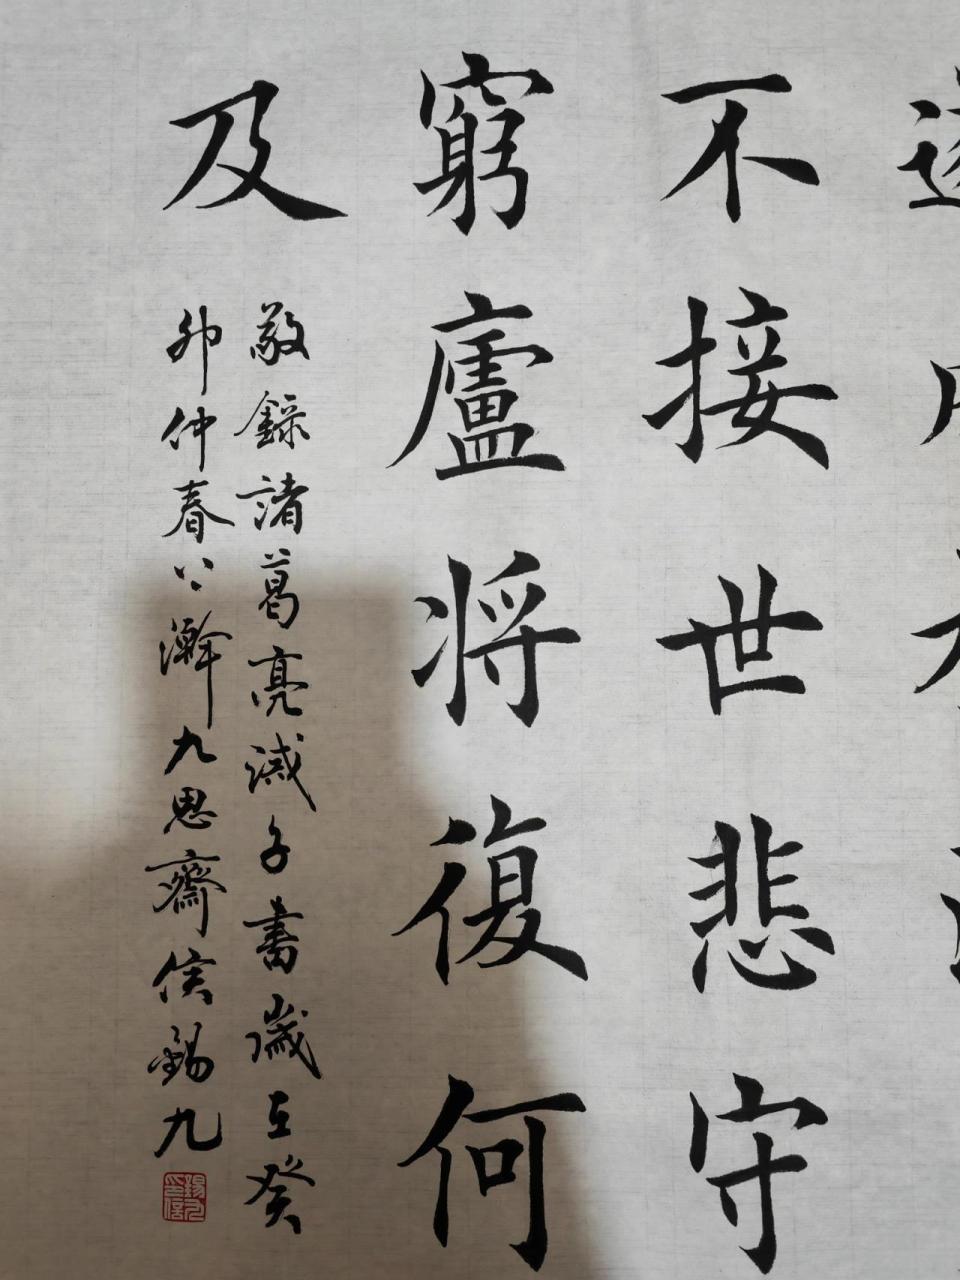 不接世悲守
窮廬將復何
及
敬錄諸葛亮誡子書歲在癸
卯仲春瀚九思齋侯錫九
錫九
印信